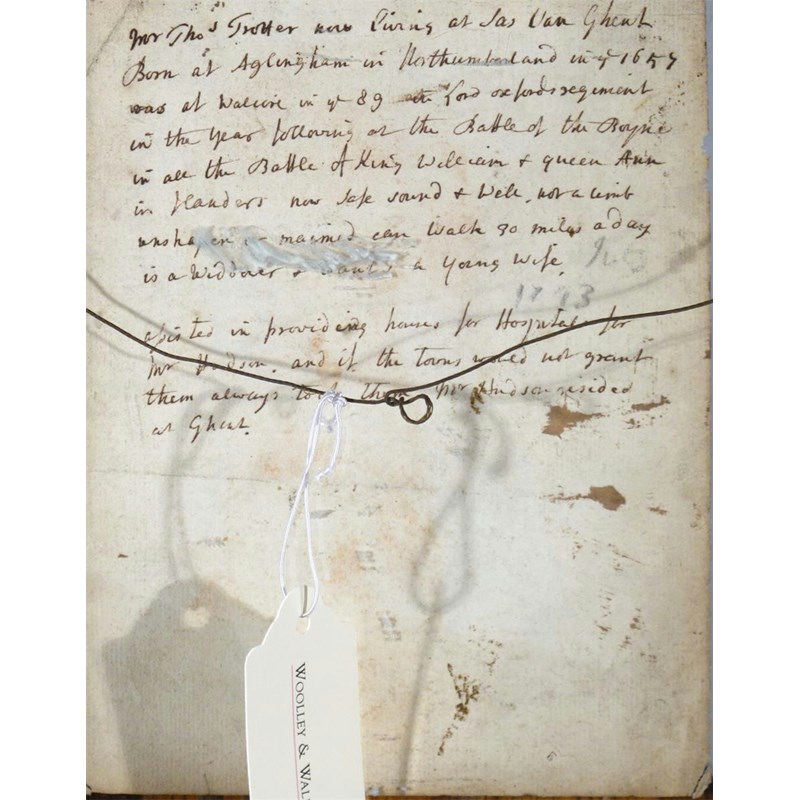 Mr Thos Trotter now Living at Sas Van Ghent
Born at Aglingham in Northumberland in ye 1657
was at Walcire in ye 89 in Lord oxfords regiment
in the Year following at the Battle of the Boyne
in all the Battle of King William & queen Ann
in Flanders now safe sound & Well, nor a limb
unshapen or maimed can Walk 30 miles a day
is a Widdover & wants a Young Wife,
1773
assisted in providing houses for Hospitals for
Mr Hudson. and if the Towns would not grant
them always took them Mr Hudson resided
at Ghent.
WOOLLEY & WAL